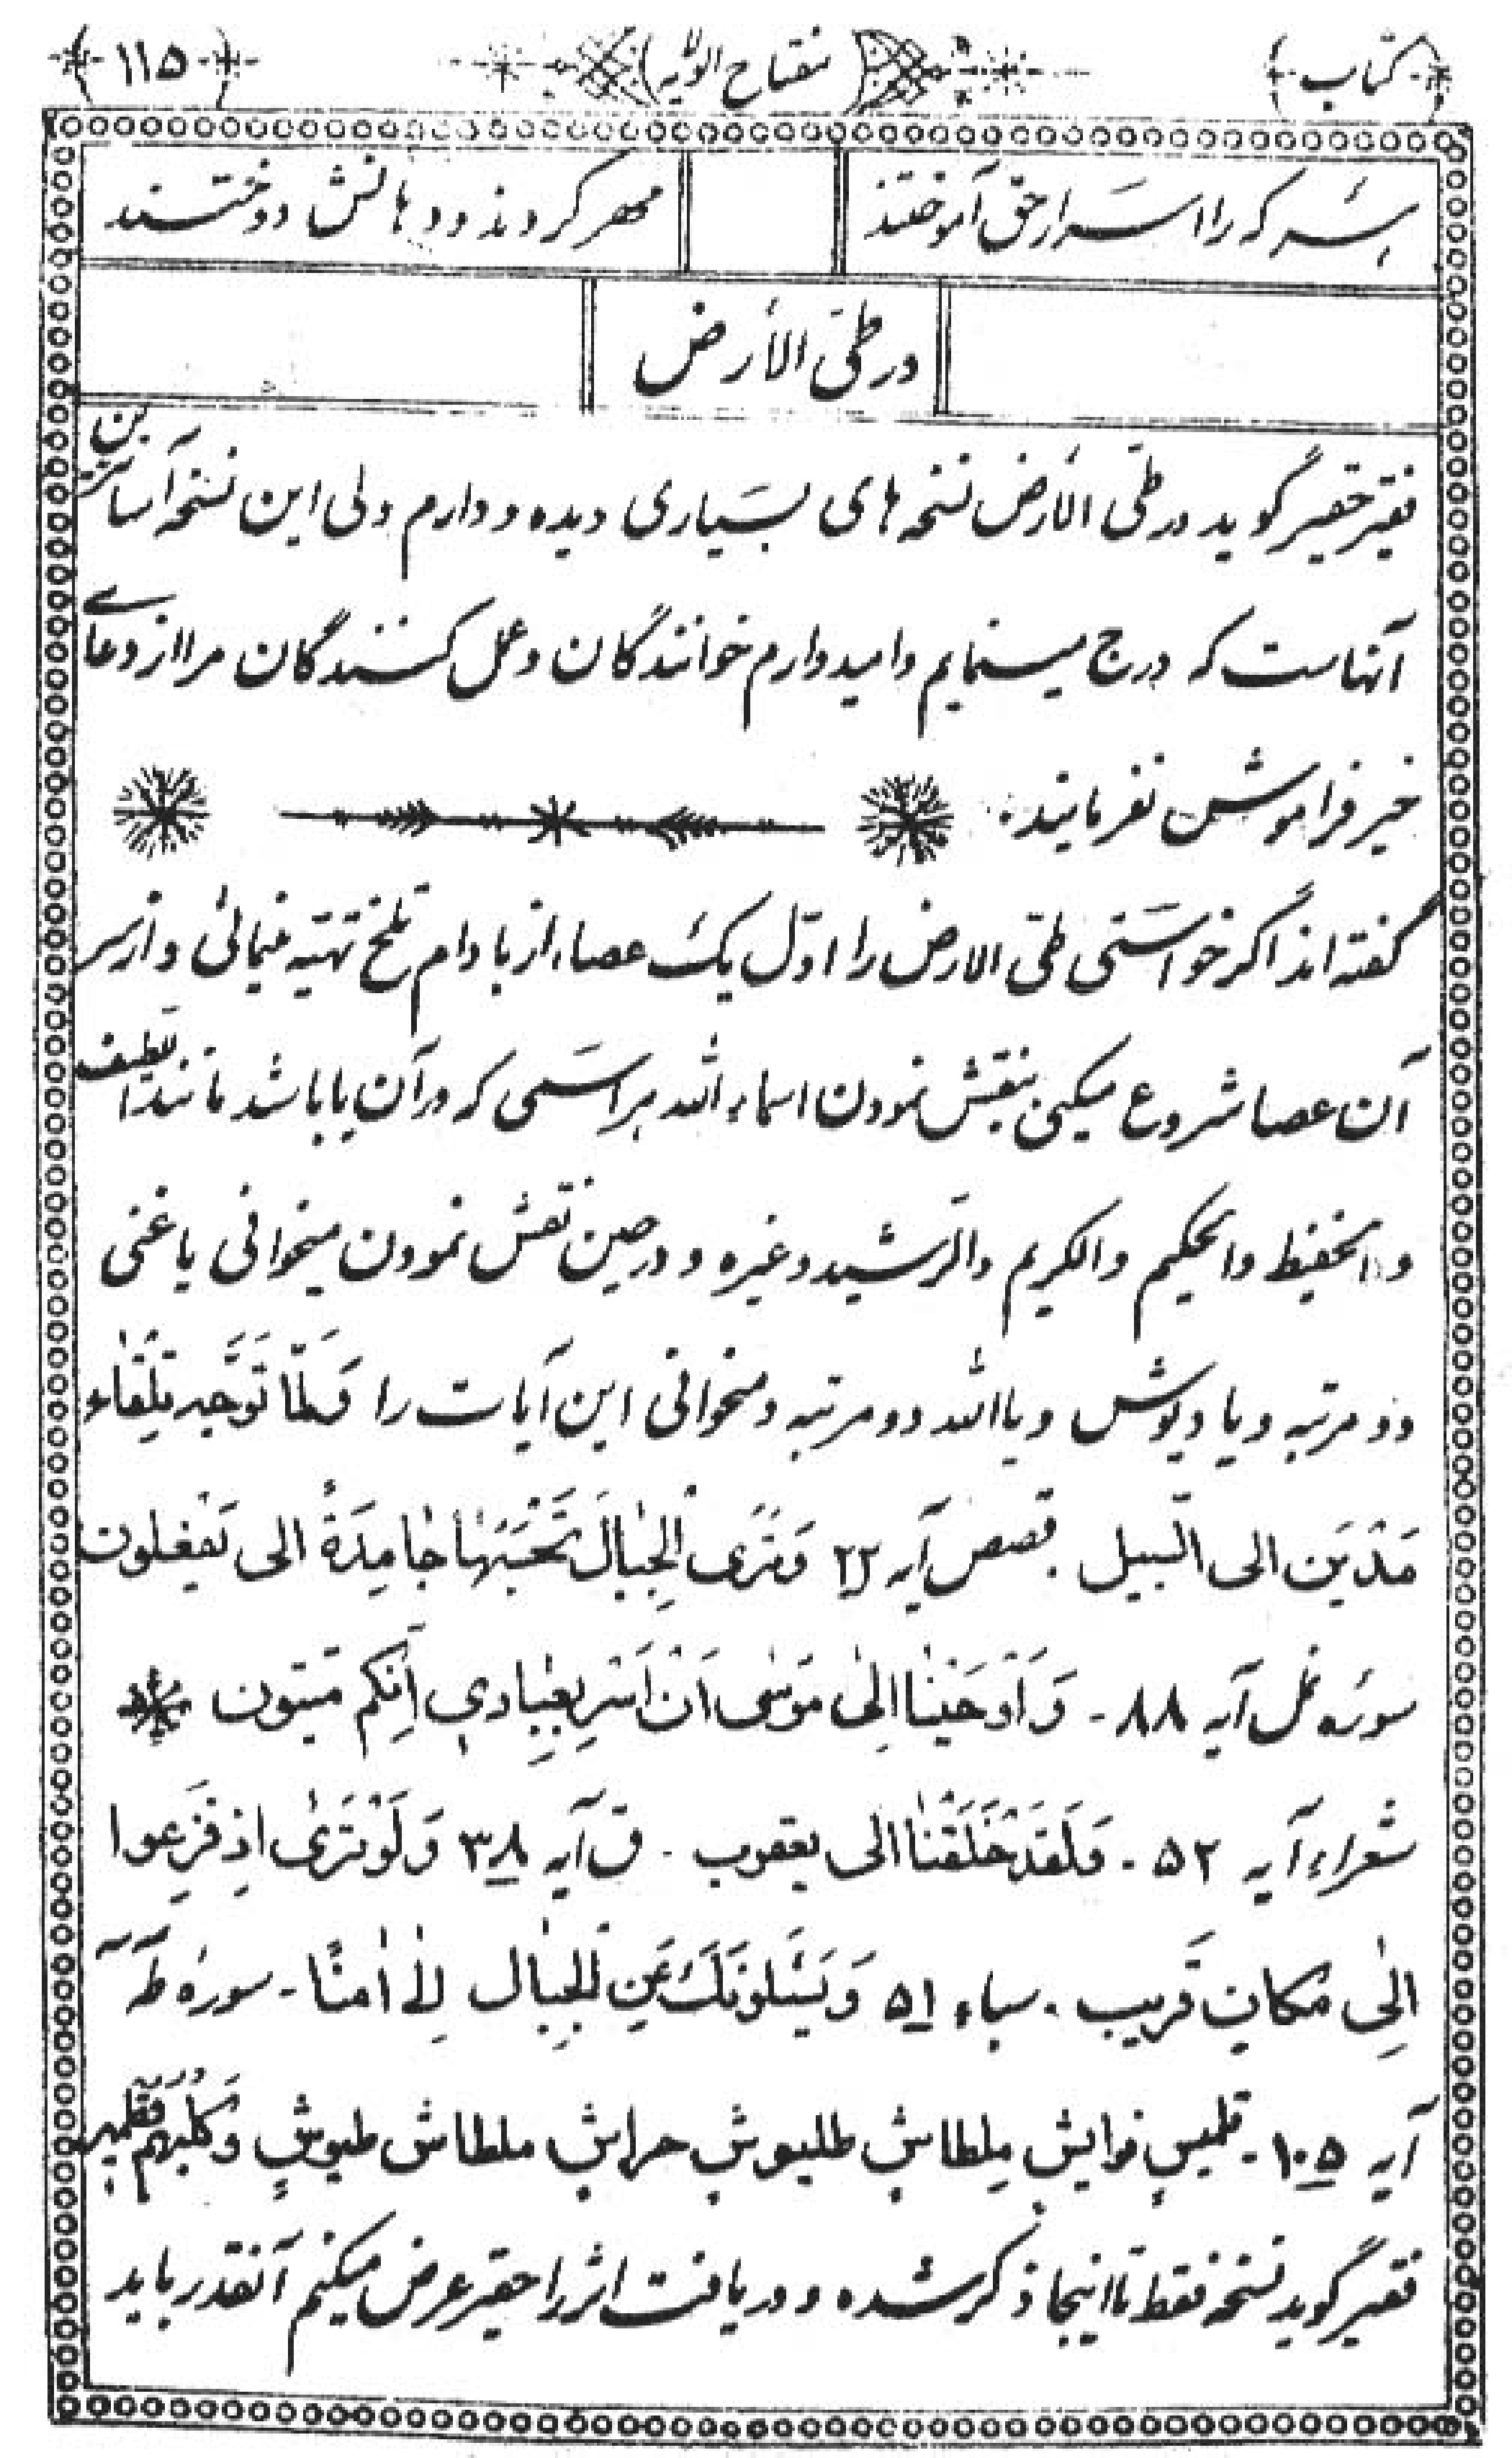 کتاب
مفتاح الولایه
۱۱۵
هر که را اسرار حق آموختند
مهر کردند و دهانش دوختند
در طیّ الأرض
فقیر حقیر گوید در طیّ الأرض نسخه های بسیاری دیده و دارم ولی این نسخه آسانترین
آنهاست که درج مینمایم و امیدوارم خوانندگان و عمل کنندگان مرا از دعای
خیر فراموش نفرمایند.
گفته اند اگر خواستی طیّ الارض را اوّل یک عصاء از بادام تلخ تهیّه نمائی و از سر
آن عصا شروع میکنی بنقش نمودن اسماء الله هر اسمی که در آن یا باشد مانند الطیف
و الحفیظ والحکیم والکریم والرّشید و غیره و در حین نقش نمودن میخوانی یا غنی
دو مرتبه و یا دیوش و یا الله دو مرتبه و میخوانی این آیات را وَ لَمّا تَوَجَّهَ تِلْقٰاءَ
مَدْیَنَ الی السّبیل . قصص آیه ۲۲ وَ تَرَی الْجِبٰالَ تَحْسَبُهٰا جٰامِدَةً الی تَفعَلون
سوره نمل آیه ۸۸ - وَ اَوْحَیْنٰا اِلٰی مُوسٰی اَنْ اَسْرِ بِعِبٰادی اِنّکم متبعون
شعراء آیه ۵۲ - وَ لَقَدْ خَلَقْنٰا الی یعقوب - ق آیه ۳۸ وَ لَوْ تَرٰی اذ فَزِعوا
اِلٰی مکانٍ قَریب . سباء ۵۱ وَ یَسْئَلونَکَ عَنِ الْجِبٰال اِلٰی اَمتًا - سوره طه
آیه ۱۰۵ - ملطاش طلیوش حراش ملطاش طیوش وَ کلبُهم قطمیر
فقیر گوید نسخه فقط تا اینجا ذکر شده و دریافت اثر را حقیر عرض میکنم آنقدر باید